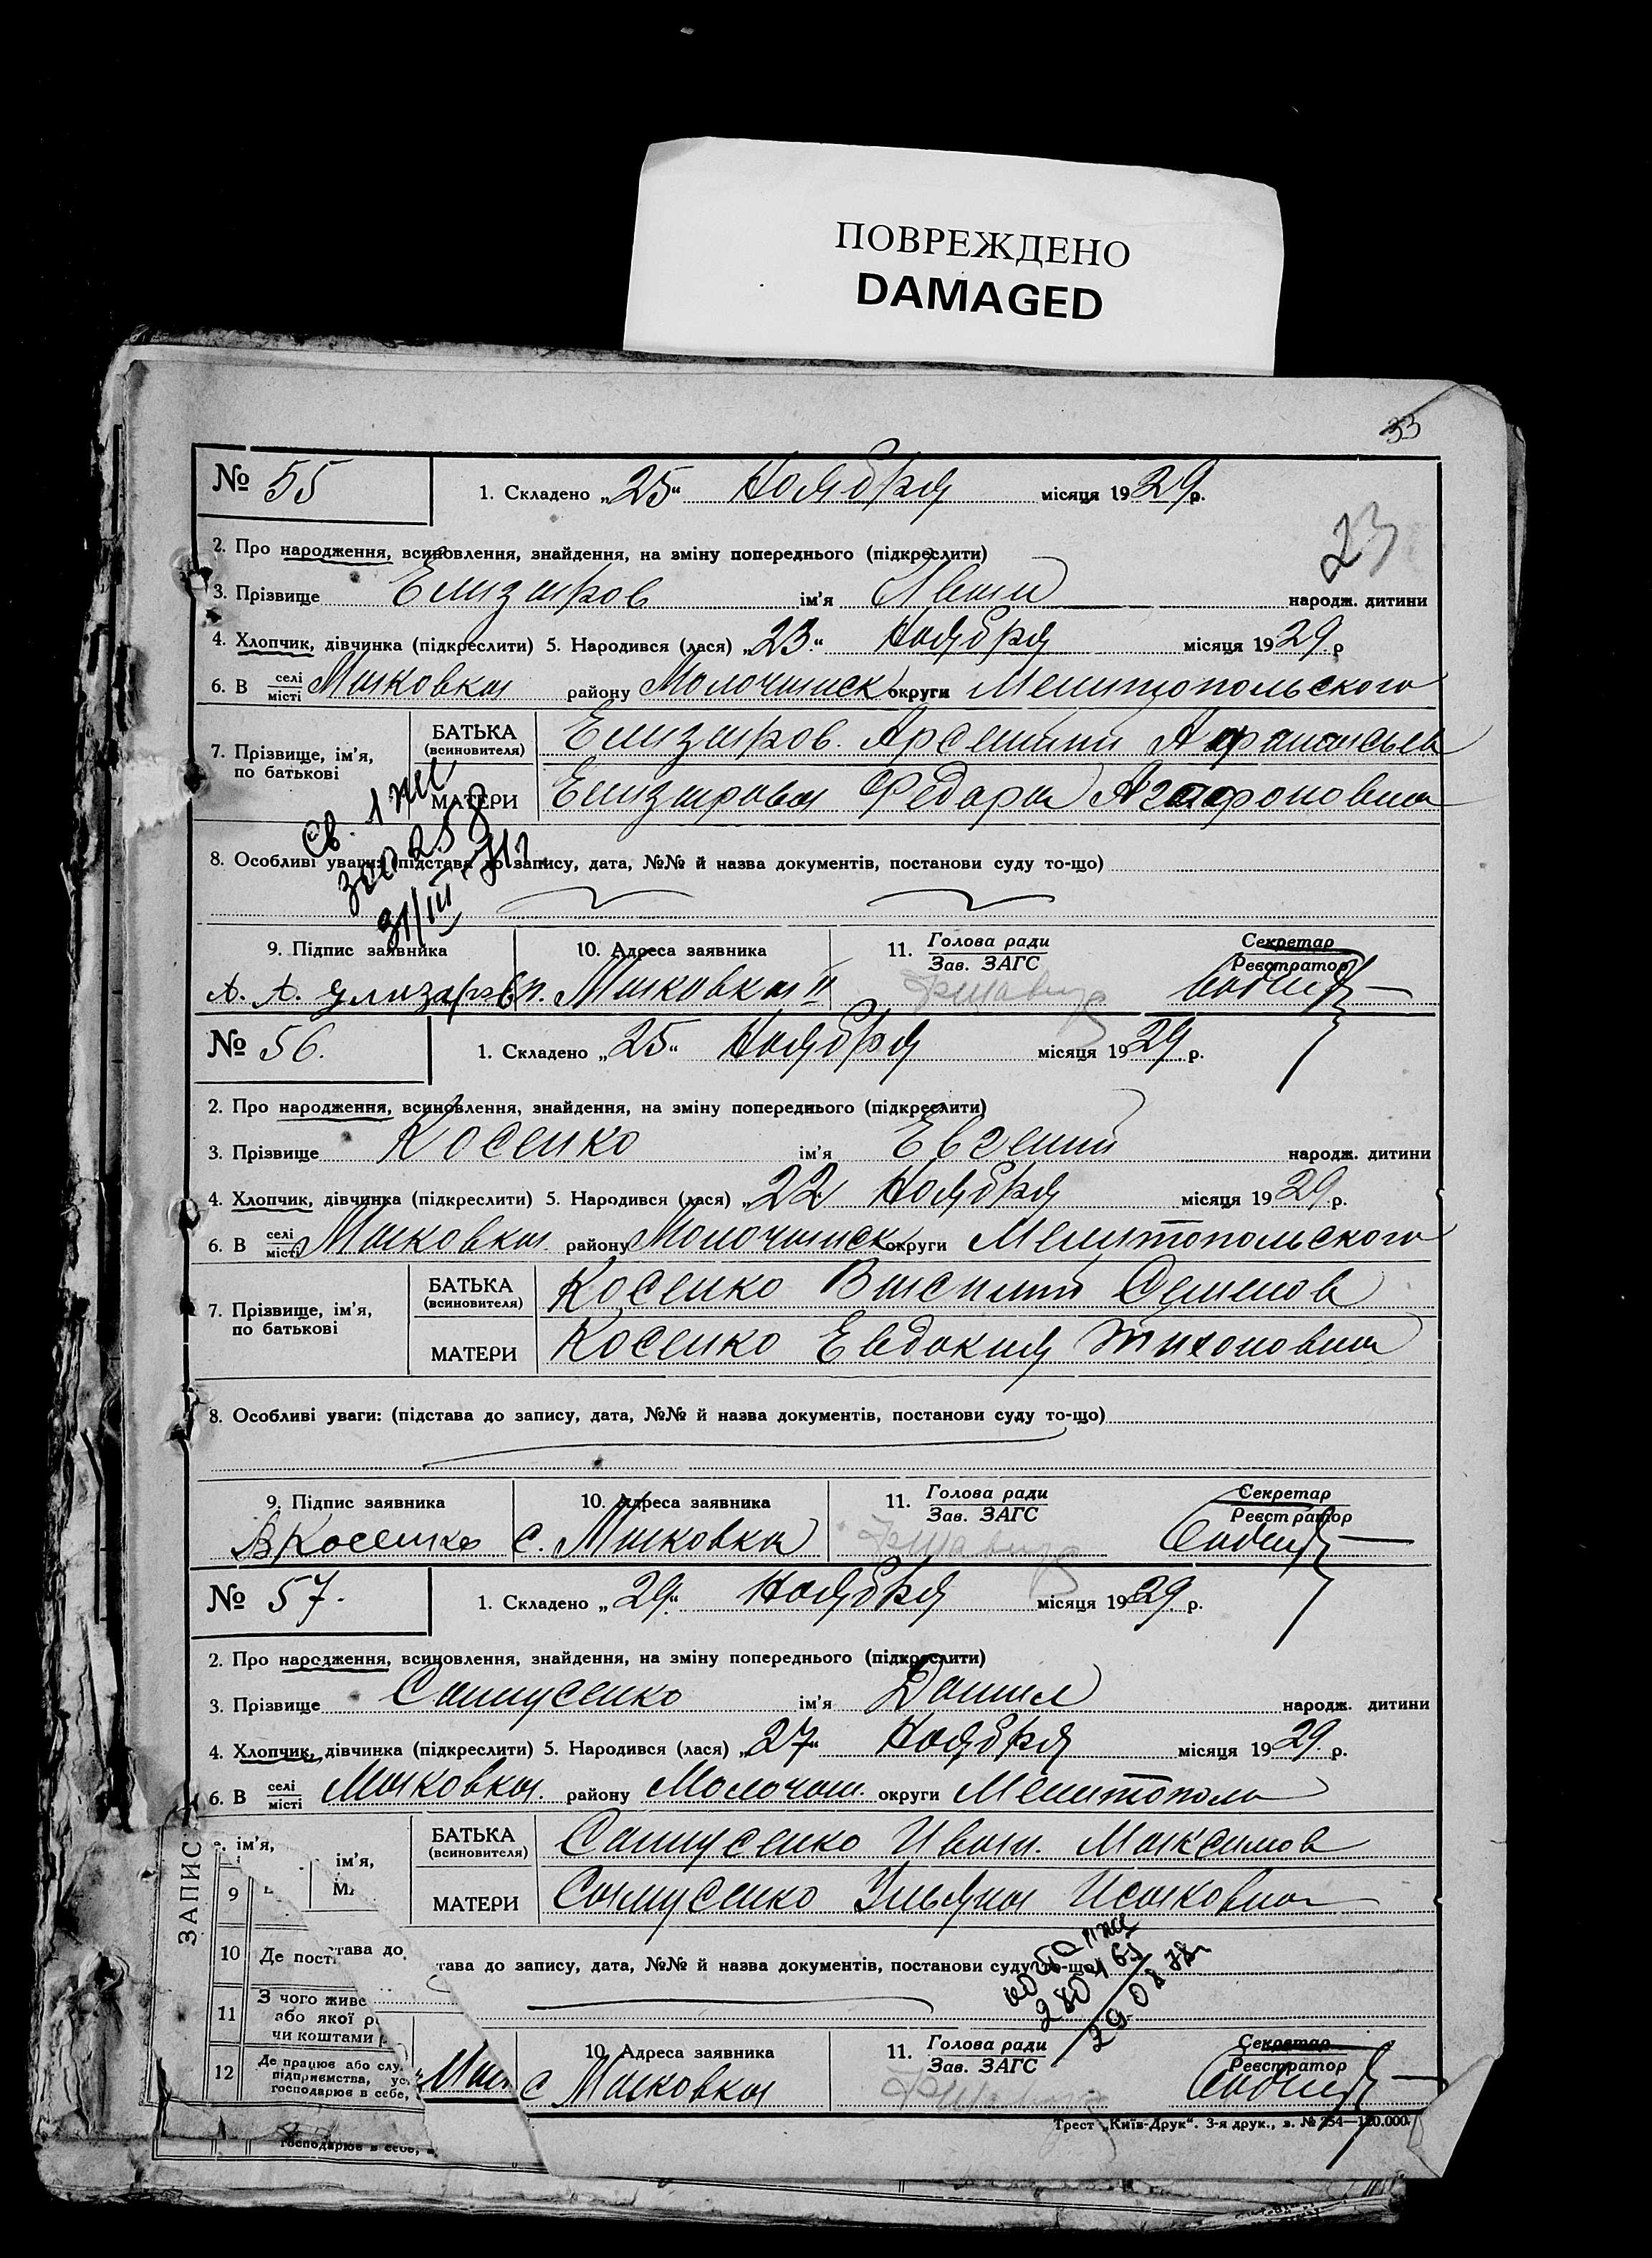 ПОВРЕЖДЕНО
DAMAGED
33
№ 55
1. Складено „25“ Ноября місяця 1929 р.
23
2. Про народження, всиновлення, знайдення, на зміну попереднього (підкреслити)
3. Прізвище Елизаров ім'я народж. дитини
4. Хлопчик, дівчинка (підкреслити) 5. Народився (лася) „23“ Ноября місяця 1929 р
6. В селі місті Маковка району Молочанск округи Мелитопольского
7. Прізвище, ім'я, по батькові
БАТЬКА (всиновителя) Елизаров. Арсентий Афанасьев
МАТЕРИ Елизарова Федора Агафоновна
Св. 1
258
31/III
8. Особливі уваги: (підстава до запису, дата, №№ й назва документів, постанови суду то-що)
9. Підпис заявника 10. Адреса заявника 11. Голова ради Зав. ЗАГС Секретар Реєстратор
А. А. Елизаров п. Маковка II
№ 56.
1. Складено „25“ Ноября місяця 1929 р.
2. Про народження, всиновлення, знайдення, на зміну попереднього (підкреслити)
3. Прізвище Косенко ім'я Евгений народж. дитини
4. Хлопчик, дівчинка (підкреслити) 5. Народився (лася) „22 Ноября місяця 1929 р.
6. В селі місті Маковка району Молочанск округи Мелитопольского
7. Прізвище, ім'я, по батькові
БАТЬКА (всиновителя) Косенко Василий Семенов
МАТЕРИ Косенко Евдокия Тихоновна
8. Особливі уваги: (підстава до запису, дата, №№ й назва документів, постанови суду то-що)
9. Підпис заявника 10. Адреса заявника 11. Голова ради Зав. ЗАГС Секретар Реєстратор
В Косенко с. Маковка
№ 57.
1. Складено „29“ Ноября місяця 1929 р.
2. Про народження, всиновлення, знайдення, на зміну попереднього (підкреслити)
3. Прізвище Самусенко ім'я Данил народж. дитини
4. Хлопчик, дівчинка (підкреслити) 5. Народився (лася) „27“ Ноября місяця 1929 р.
6. В селі місті Маковка. району Молочан. округи Мелитополь
ЗАПИС
ім'я,
ім'я,
БАТЬКА (всиновителя) Самусенко Иван. Максимов
9
МАТЕРИ Самусенко Ульяна Исаковна
10 Де пост
тава до
тава до запису, дата, №№ й назва документів, постанови суду то-що)
29 08 78
11 З чого живе
або якої р
чи коштами
12 Де працює або слу
підприємства, ус
господарює в себе,
10. Адреса заявника 11. Голова ради Зав. ЗАГС Секретар Реєстратор
с Маковка
Трест „Київ-Друк“. 3-я друк., з. № 254—120.000.
господарює в себе,